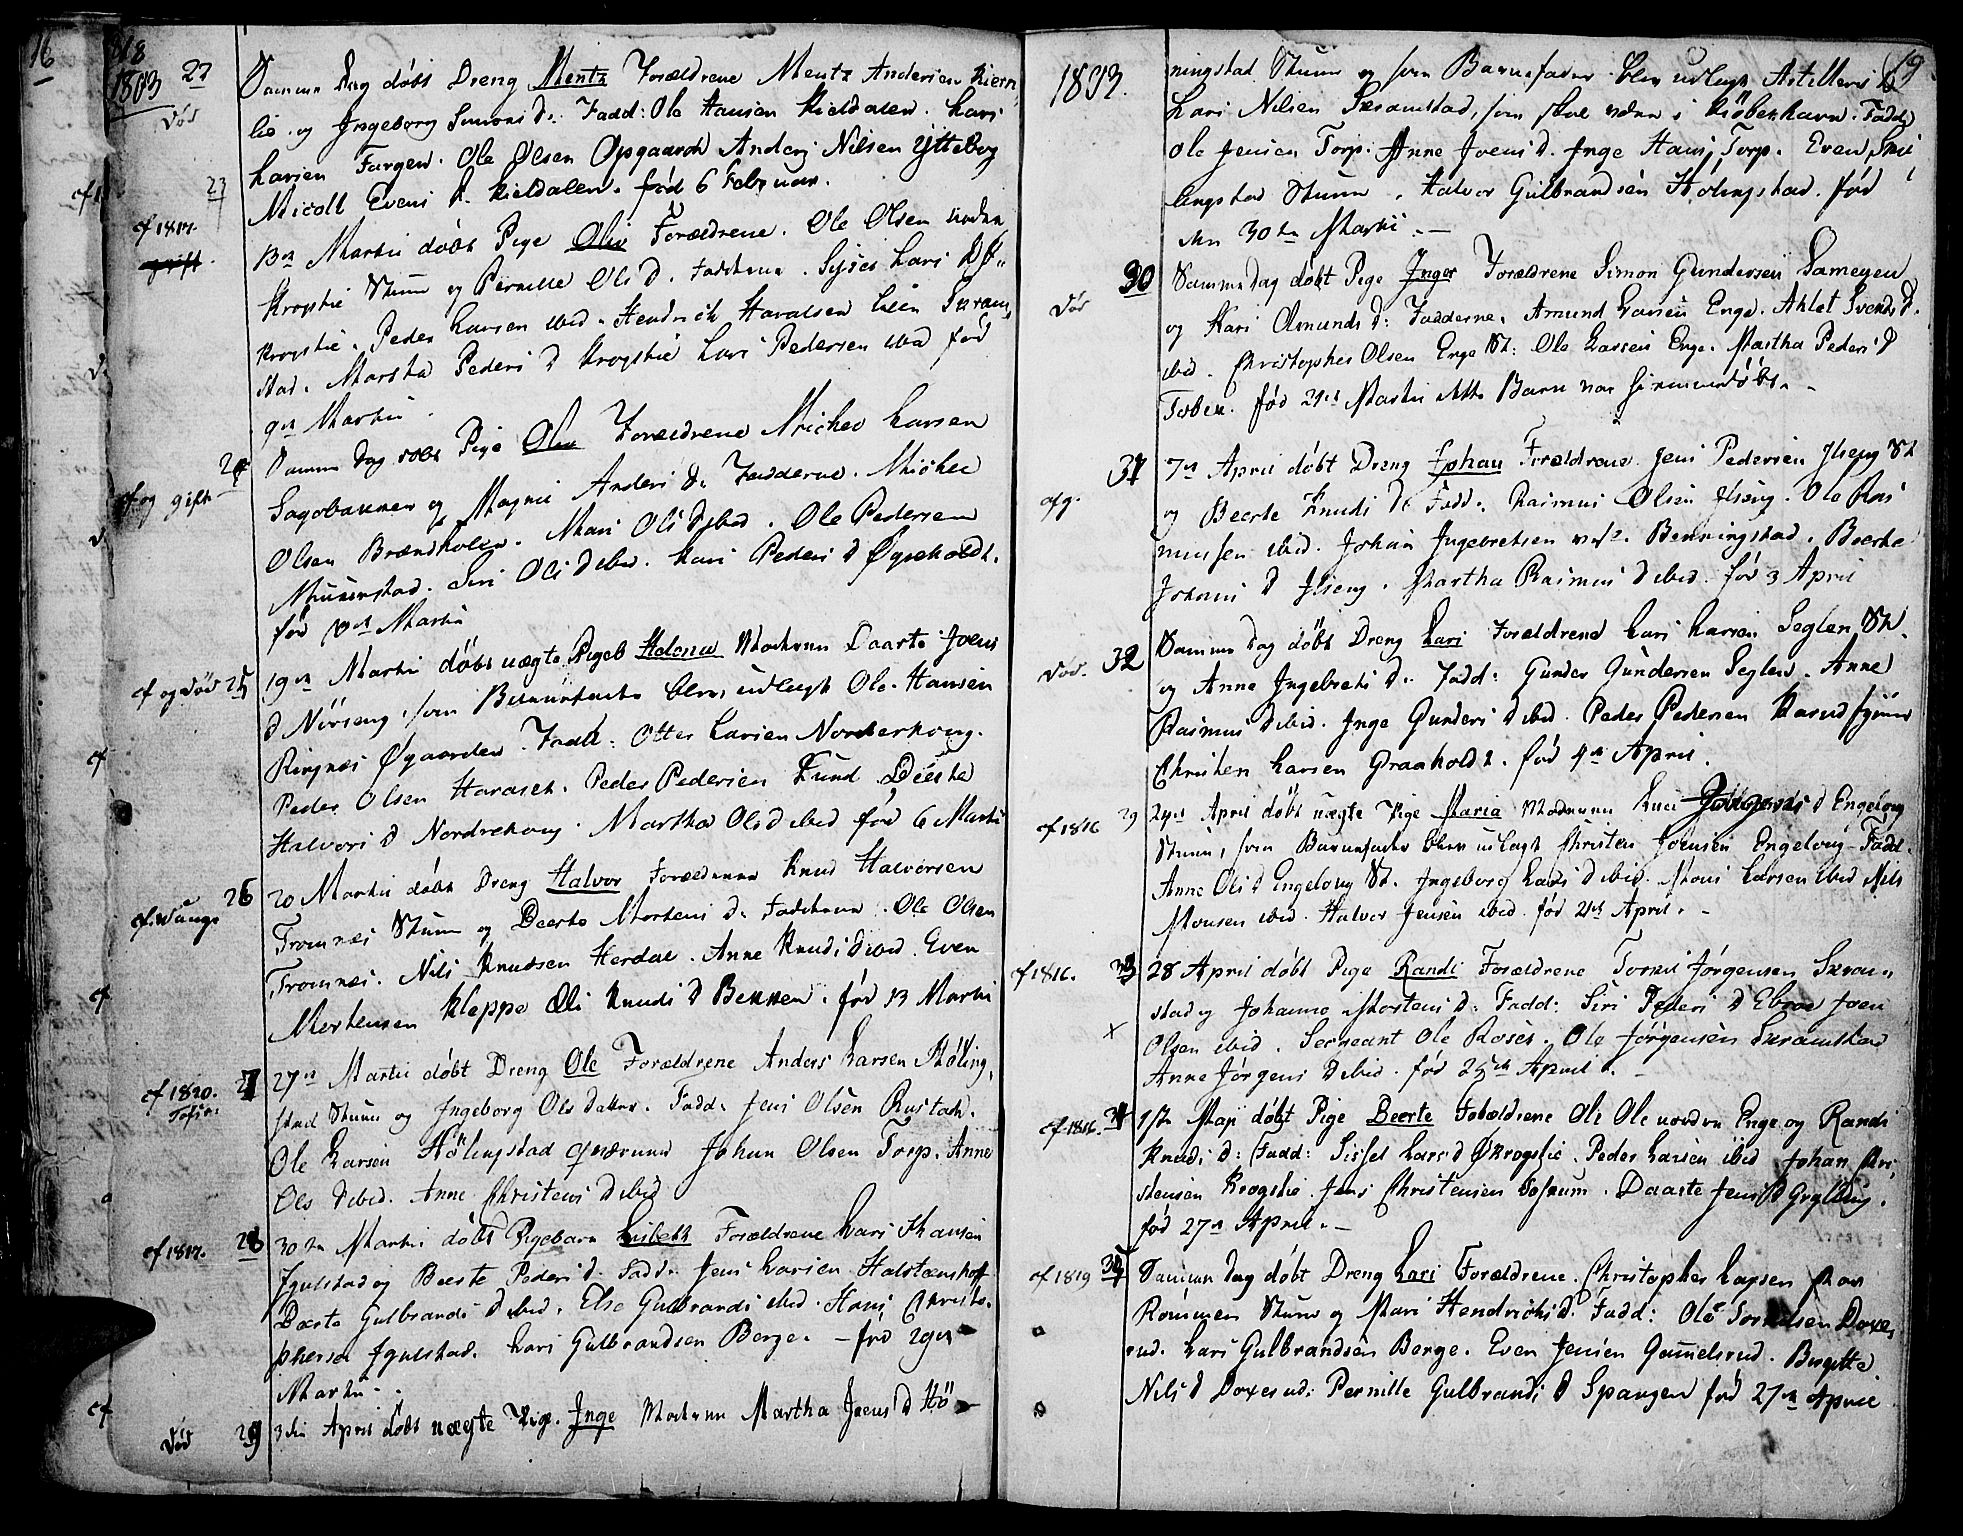 16
18
1803
22
Død
Samme Dag døbt Dreng Mentz Forældrene Mentz Andersen Kiern
lie og Ingeborg Simens D. Fadd: Ole Hansen Kieldalen. Lars
Larsen Furgen. Ole Olsen Opgaard Anders Nilsen Ytteborg
Nicoll Evens D. Kieldalen. fød 6 Februar.
23
cf 1817.
gift.
13de Martii døbt Pige Oliv Forældrene. Ole Olsen
Krogslie Stuun og Pernille Ols D. Fadderne. Sissel Lars D
Krogslie. Peder Larsen ibid. Hendrich Haralsen Skram
stad. Martha Peders D Krogslie Lars Pedersen ibid fød
9de Martii.
24
cf og gift
Samme Dag døbt Pige Forældrene Michel Larsen
Sagabakken og Magni Anders D. Fadderne. Michel
Olsen Brændholen. Mari Ols D ibid. Ole Pedersen
Muuerstad. Siri Ols D ibid. Kari Peders D Øgneholdt.
fød Martii
cf og Død 25
19de Martii døbt uægte Pigeb Helena Moderen Daarte Joens
D Nörseng, som Barnefader blev udlagt Ole Hansen
Ringnæs Øgaarden. Fadd: Otter Larsen Norderhoug.
Peder Olsen Haraset. Peder Pedersen Lund
Halvors D Nordrehoug. Martha Ols D ibid fød 6 Martii
26
cf. Vangs
20 Martii døbt Dreng Halvor Forældrene Knud Halvorsen
Tromnæs Stuun og Beerte Mortens D. Fadderne. Ole Olsen
Tromnæs. Nils Knudsen Herdal. Anne Knuds D ibid. Even
Mortensen Kleppe Oli Knuds D Bekken. fød 13 Martii
cf 1820. 27
27de Martii døbt Dreng Ole Forældrene Anders Larsen Höling,
stad Stuun og Ingeborg Ols datter. Fadd. Jens Olsen Rustad.
Ole Larsen Hölingstad Johan Olsen Torp. Anne
Ols D ibid. Anne Christens D ibid
cf 1817. 28
30te Martii døbt Pigebarn Lisbeth Forældrene Lars Hansen
Igulstad og Beerte Peders D. Fadd. Jens Larsen Halstenshof
Daarte Gulbrands D ibid. Else Gulbrands ibid. Hans Christo-
phersen Igulstad. Lars Gulbrandsen Berge. - fød 29de
Martii.
Død 29
3die April døbt uægte Pige. Inge Moderen Martha Joens D Hö
1803.
19
ningstad Stuun og som Barnefader blev udlagt Artillerist
Lars Nilsen Skramstad, som skal være i Kiöbenhavn. Fadd.
Ole Jensen Torp. Anne Joens D. Inge Hans D Torp. Even
lingstad Stuun. Halvor Gulbrandsen Hölingstad. fød
den 30te Martii.-
30
Død
Samme Dag døbt Pige Inger Forældrene Simon Gundersen Sameyen
og Kari Amunds D: Fadderne. Amund Larsen Enge. Ahlet Svends D.
ibid. Christopher Olsen Enge St: Ole Larsen Enge. Martha Peders D
Torben. fød 21de Martii dette Barn var hiemmedøbt.-
31
cfg.
7de April døbt Dreng Johan Forældrene Jens Pedersen Ilseng St
og Beerte Knuds D. Fadd. Rasmus Olsen Ilseng. Ole Ras
mussen ibid. Johan Ingebretsen Benningstad. Beerte
Johans D Ilseng. Martha Rasmus D ibid fød 3 April
Død. 32
Samme Dag døbt Dreng Lars Forældrene Lars Larsen Seglen St.
og Anne Ingebrets D. Fadd: Gunder Gundersen Seglen. Anne
Rasmus D ibid. Inge Gunders D ibid. Peder Pedersen
Christen Larsen Graaholdt. fød 4de April.
cf 1816 29
24de April døbt uægte Pige Maria Moderen D Engeloug
Stuun, som Barnefader blev udlagt Christen Joensen Engeloug Fadd.
Anne Ols D Engeloug St. Ingeborg Lars D ibid. Mons Larsen ibid Nils
Monsen ibid. Halvor Jensen ibid. fød 21de April.-
cf 1816. 33
x
28 April døbt Pige Randi Forældrene Torkel Jörgensen Skram-
stad og Johanne Mortens D: Fadd: Siri Peders D Ebroe Joen
Olsen ibid. Sergeant Ole Roset. Ole Jörgensen Skramstad
Anne Jörgens D ibid. fød 25de April.-
cf. 1816. 34
1ste Maji døbt Pige Beerte Forældrene Ole Ole Enge og Randi
Knuds D: Fadd: Sissel Lars D Krogslie. Peder Larsen ibid Johan Chri
stensen Krogslie. Jens Christensen Tofsrum. Daarte Jens D Grylling.
fød 27de April.-
cf 1819 35
Samme Dag døbt Dreng Lars Forældrene. Christopher Larsen
Rommen Stuun og Mari Hendrichs D. Fadd: Ole Torkelsen Doxe,
rud. Lars Gulbrandsen Berge. Even Jensen Gammelsrud. Birgitte
Nils D Doxerud. Pernille Gulbrands D Spangen fød 27de April